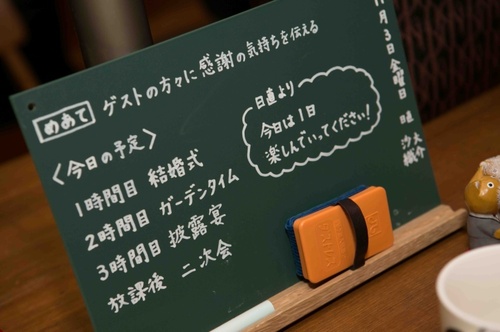 めあて ゲストの方々に感謝の気持ちを伝える
〈今日の予定〉
1時間目 結婚式
2時間目 ガーデンタイム
3時間目 披露宴
放課後 二次会
日直より
今日は1日
楽しんでいってください!
月3日金曜日
日直
大介
沙織